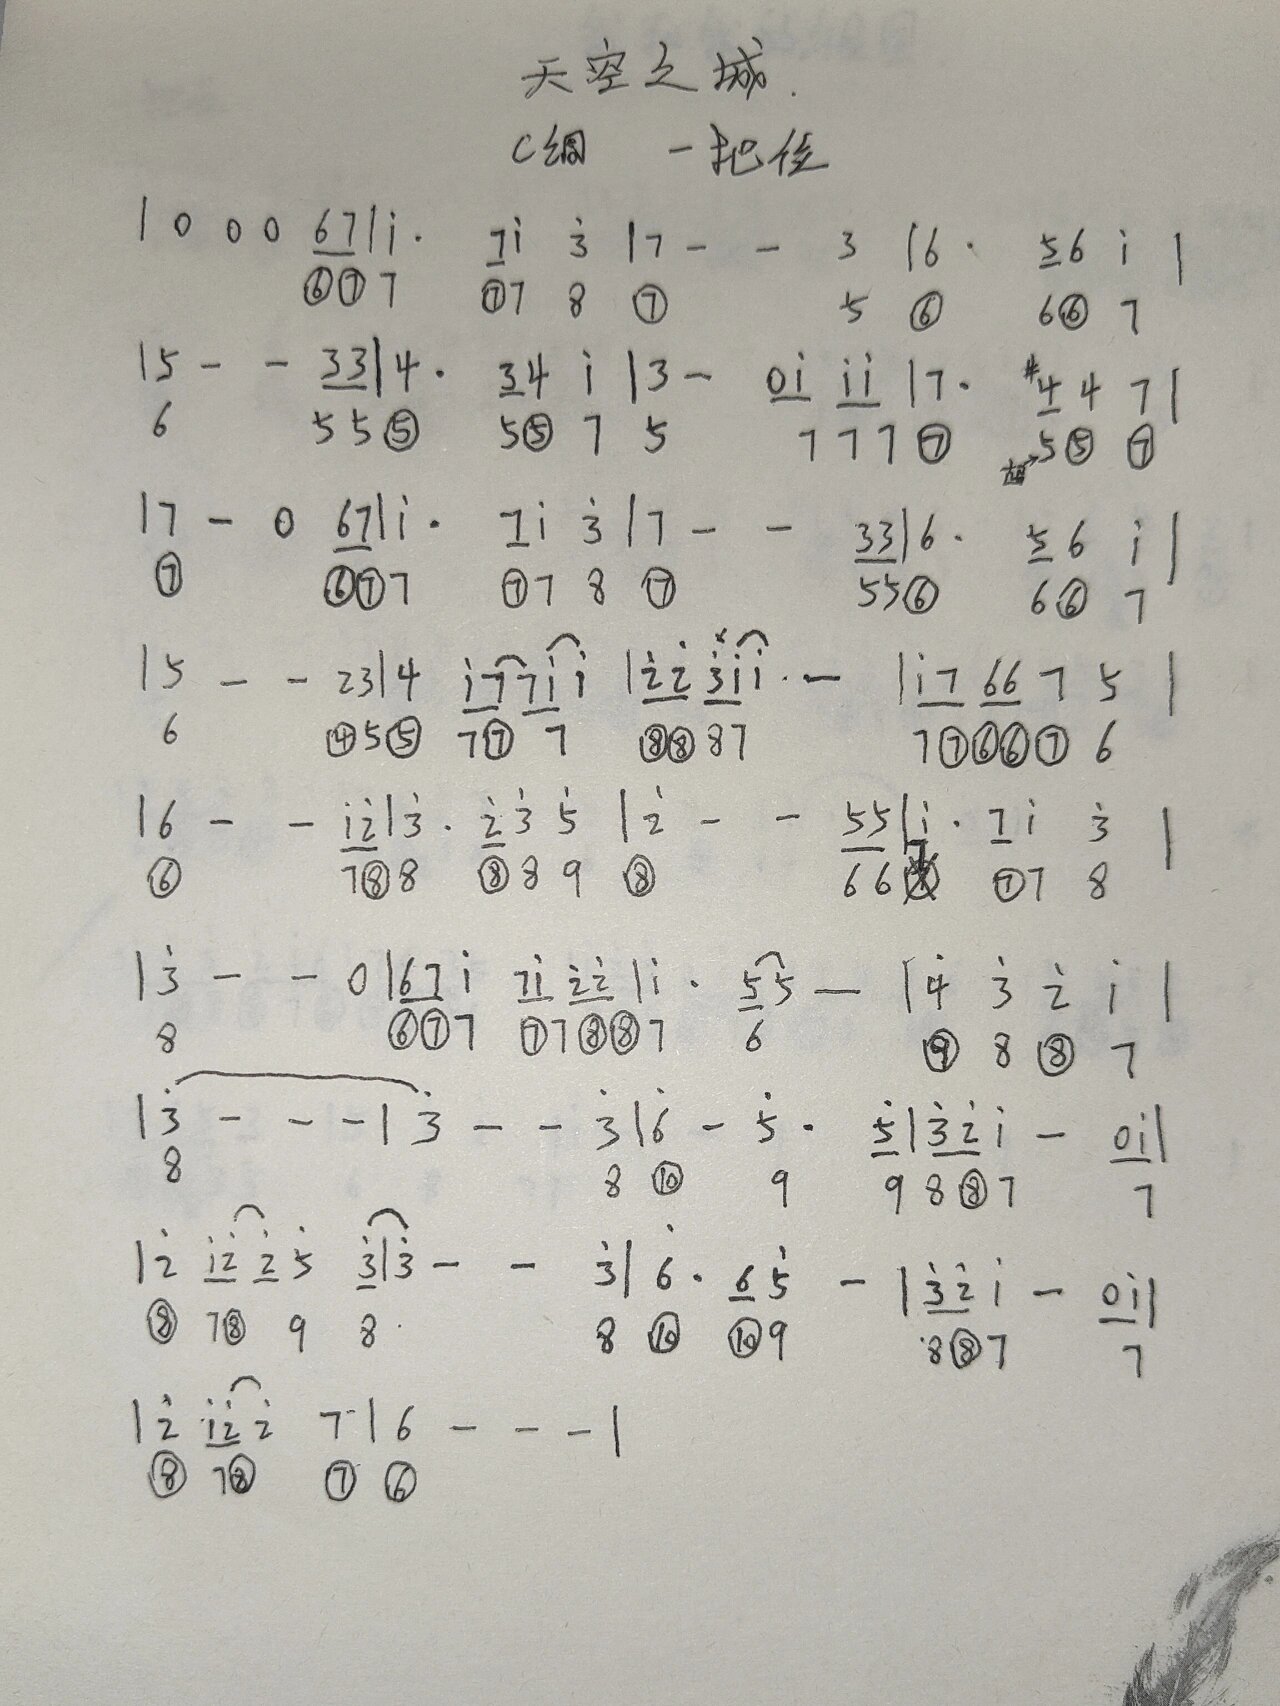 天空之城.
C调 一把位
| 0 0 0 67 | i· 7i 3̇ | 7 - - 3 | 6· 56 i |
⑥⑦7 ⑦7 8 ⑦ 5 ⑥ 6⑥ 7
| 5 - - 33 | 4· 34 i | 3 - 0i ii | 7· #4 4 7 |
6 55⑤ 5⑤ 7 5 7 7 7 ⑦ 5⑤ ⑦
| 7 - 0 67 | i· 7i 3̇ | 7 - - 33 | 6· 56 i |
⑦ ⑥⑦7 ⑦7 8 ⑦ 55⑥ 6⑥ 7
| 5 - - 23 | 4 i7 7i i | 2̇2̇ 3̇i i· - | i7 66 7 5 |
6 ④5⑤ 7⑦ 7 ⑧⑧87 7⑦⑥⑥⑦ 6
| 6 - - i2̇ | 3̇· 2̇3̇ 5̇ | 2̇ - - 55 | i· 7i 3̇ |
⑥ 7⑧8 ⑧8 9 ⑧ 66 7 ⑦7 8
| 3̇ - - 0 | 67 i 7i 2̇2̇ | i· 55 - | 4̇ 3̇ 2̇ i |
8 ⑥⑦7 ⑦7⑧⑧7 6 ⑨ 8 ⑧ 7
| 3̇ - - - | 3̇ - - 3̇ | 6̇ - 5̇· 5̇ | 3̇2̇ i - 0i |
8 8 ⑩ 9 9 8⑧7 7
| 2̇ i2̇ 2̇ 5̇ 3̇ | 3̇ - - 3̇ | 6̇· 65̇ - | 3̇2̇ i - 0i |
⑧ 7⑧ 9 8 8 ⑩ ⑩9 8⑧7 7
| 2̇ i2̇ 2̇ 7 | 6 - - - |
⑧ 7⑧ ⑦ ⑥